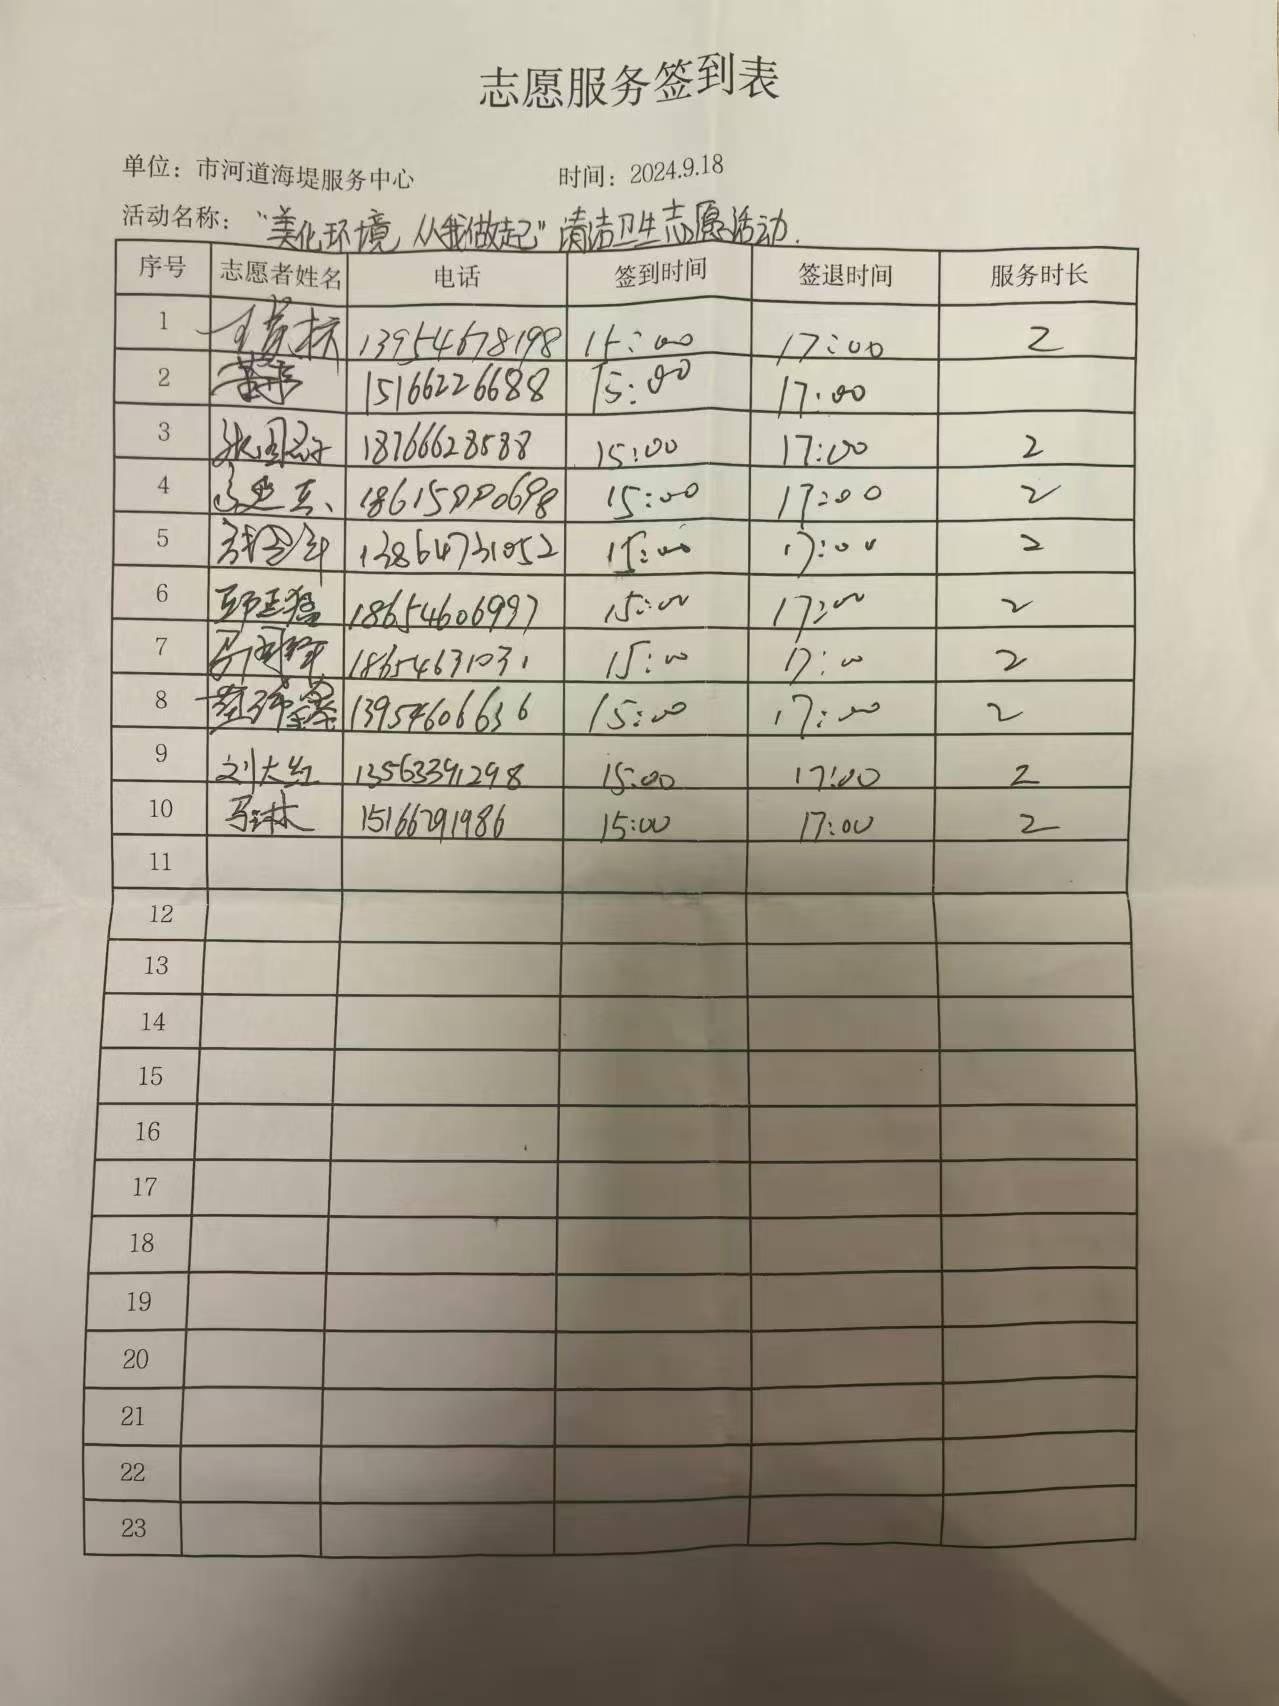 志愿服务签到表
单位：市河道海堤服务中心 时间：2024.9.18
活动名称：“美化环境 从我做起”清洁卫生志愿活动.
序号 志愿者姓名 电话 签到时间 签退时间 服务时长
1 13954678198 15:00 17:00 2
2 15166226688 15:00 17:00
3 18766628588 15:00 17:00 2
4 18615000698 15:00 17:00 2
5 13864731052 15:00 17:00 2
6 18654606997 15:00 17:00 2
7 18654631031 15:00 17:00 2
8 13954606636 15:00 17:00 2
9 刘大红 13563391298 15:00 17:00 2
10 马琳 15166291986 15:00 17:00 2
11
12
13
14
15
16
17
18
19
20
21
22
23